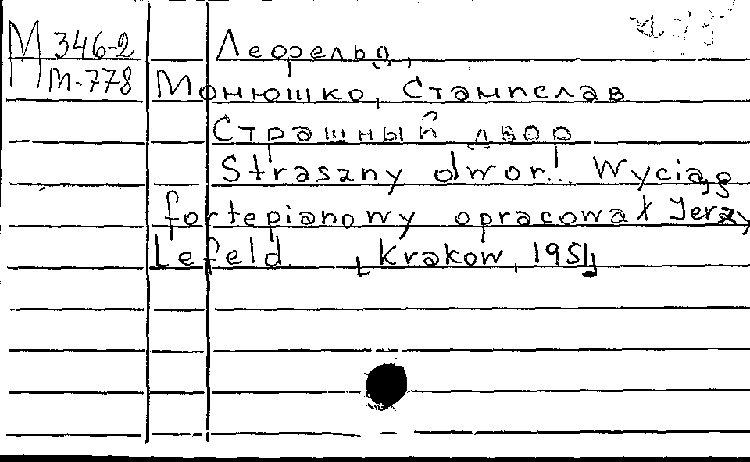 М 346-2
М-778
Лефельд,
Монюшко, Станислав
Страшный двор
Straszny dwor. Wyciąg
fortepianowy opracował Jerzy
Lefeld. [Krakow, 1951]